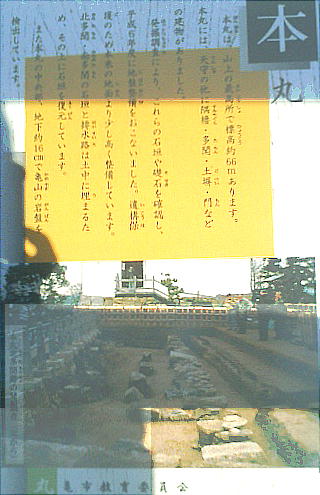 本丸
本丸は、山上の最高所で標高約66mあります。
本丸には、天守の他に隅櫓・多聞・土塀・門など
の建物がありました。
発掘調査により、これらの石垣や礎石を確認し、
平成6年度に地盤整備をおこないました。遺構保
護のため、本来の地面より少し高く整備しています。
北多聞・南多聞の石垣と排水路は土中に埋まるた
め、その上に石垣を復元しています。
また本丸の中央部、地下約16cmで亀山の岩盤を
検出しています。
丸亀市教育委員会